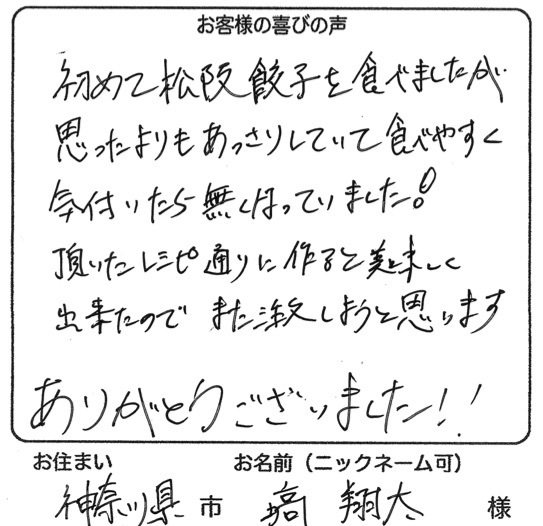 お客様の喜びの声
初めて松阪餃子を食べましたが
思ったよりもあっさりしていて食べやすく
気付いたら無くなっていました!
頂いたレシピ通りに作ると美味しく
出来たので また注文しようと思います
ありがとうございました!!
お住まい お名前(ニックネーム可)
神奈川県 市 翔太 様